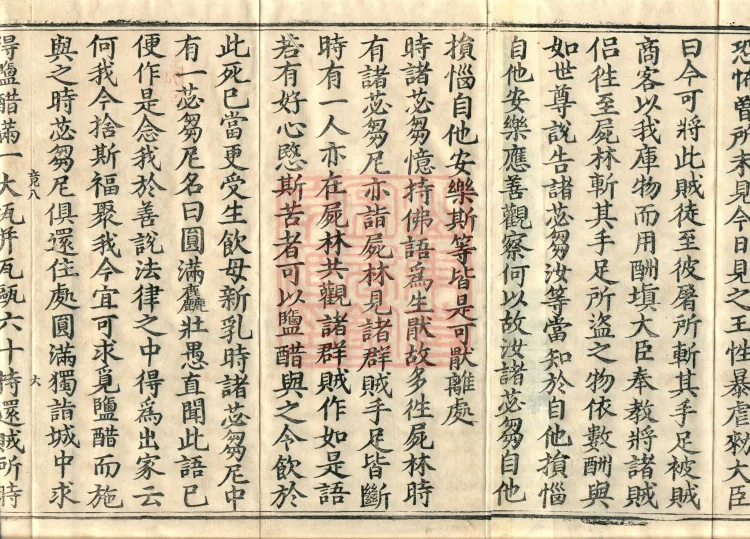 恐怖曽所未見今日見之王性暴虐勑大臣
曰今可將此賊徒至彼屠所斬其手足被賊
商客以我庫物而用酬塡大臣奉教將諸賊
侣徃至屍林斬其手足所盗之物依數酬與
如世尊說告諸苾芻汝等當知於自他損惱
自他安樂應善觀察何以故汝諸苾芻自他
損惱自他安樂斯等皆是可猒離處
時諸苾芻憶持佛語爲生猒故多徃屍林時
有諸苾芻尼亦詣屍林見諸群賊手足皆斷
時有一人亦在屍林共觀諸群賊作如是語
若有好心愍斯苦者可以鹽醋與之令飲於
此死已當更受生飲母新乳時諸苾芻尼中
有一苾芻尼名曰圓滿麤壯愚直聞此語已
便作是念我於善說法律之中得爲出家云
何我今捨斯福聚我今宜可求覓鹽醋而施
與之時苾芻尼俱還住處圓滿獨詣城中求
竟八 六
得鹽醋滿一大瓦并瓦甌六十持還賊所時